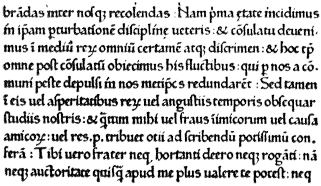 brādas inter nosq; recolendas : Nam p̄ma ętate incidimus
in ip̄am p̱turbationē disciplinę ueteris : & cōsulatu deueni⸗
mus ī mediū reꝝ omniū certamē atq; discrimen : & hoc tp̄⸗
omne post cōsulatū obiecimus his fluctibus : qui p̱ nos a cō⸗
muni peste depulsi in nos metip̄os redundarēt : Sed tamen
ī eis uel asperitatibus reꝝ uel angustiis temporis obsequar
studiis nostris : & q̄tum mihi uel fraus īimicorum uel causa
amicoꝝ : uel res.p. tribuet otii ad scribendū potissimū con⸗
ferā : Tibi uero frater neq; hortanti deero neq; rogāti : nā
neq; auctoritate quisq̄ apud me plus ualere te potest : neq